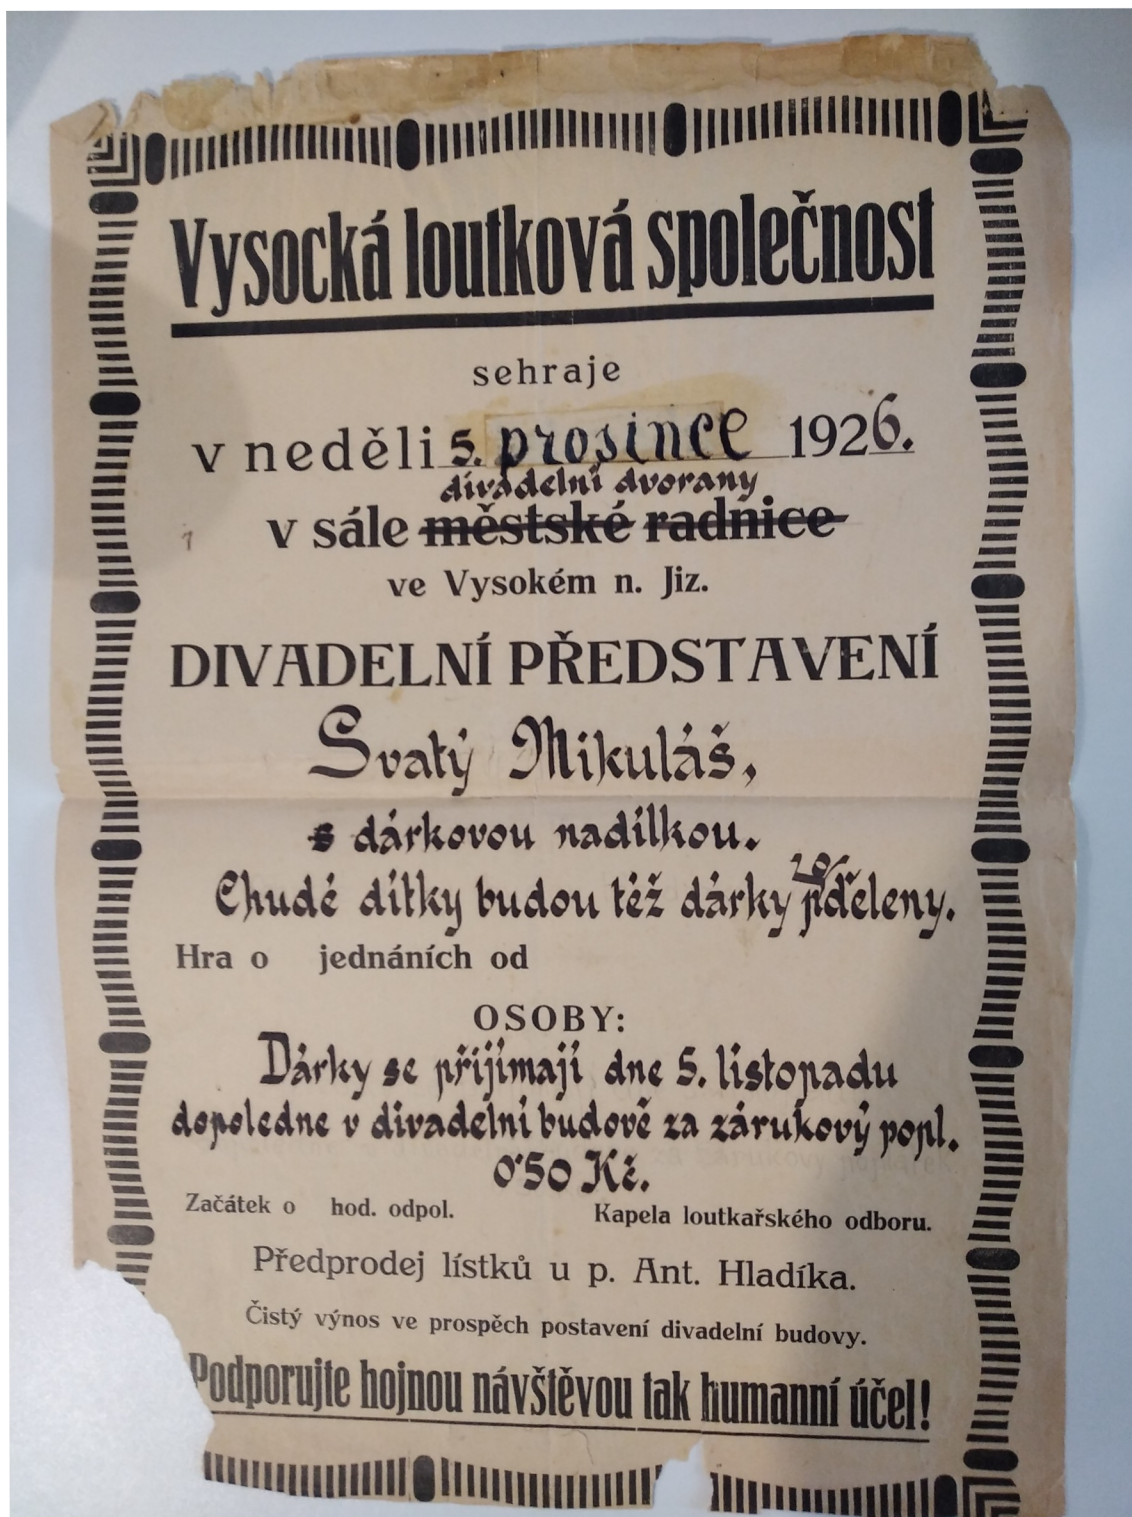 Vysocká loutková společnost
sehraje
v neděli 5. prosince 1926.
divadelní dvorany
v sále městské radnice
ve Vysokém n. Jiz.
DIVADELNÍ PŘEDSTAVENÍ
Svatý Mikuláš,
s dárkovou nadílkou.
Chudé dítky budou též dárky
Hra o jednáních od
OSOBY:
Dárky se přijímají dne 5. listopadu
dopoledne v divadelní budově za zárukový popl.
0'50 Kč.
Začátek o hod. odpol.
Kapela loutkařského odboru.
Předprodej lístků u p. Ant. Hladíka.
Čistý výnos ve prospěch postavení divadelní budovy.
Podporujte hojnou návštěvou tak humanní účel!